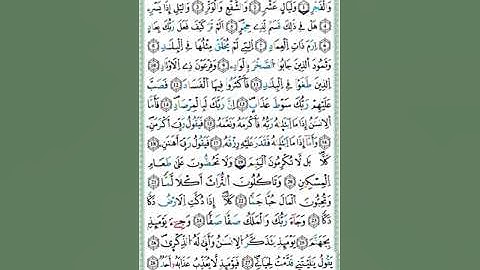 وَالْفَجْرِ ۝١ وَلَيَالٍ عَشْرٍ ۝٢ وَالشَّفْعِ وَالْوَتْرِ ۝٣ وَاللَّيْلِ إِذَا يَسْرِ
۝٤ هَلْ فِي ذَٰلِكَ قَسَمٌ لِّذِي حِجْرٍ ۝٥ أَلَمْ تَرَ كَيْفَ فَعَلَ رَبُّكَ بِعَادٍ
۝٦ إِرَمَ ذَاتِ الْعِمَادِ ۝٧ الَّتِي لَمْ يُخْلَقْ مِثْلُهَا فِي الْبِلَٰدِ ۝٨
وَثَمُودَ الَّذِينَ جَابُوا الصَّخْرَ بِالْوَادِ ۝٩ وَفِرْعَوْنَ ذِي الْأَوْتَادِ ۝١٠
الَّذِينَ طَغَوْا فِي الْبِلَٰدِ ۝١١ فَأَكْثَرُوا فِيهَا الْفَسَادَ ۝١٢ فَصَبَّ
عَلَيْهِمْ رَبُّكَ سَوْطَ عَذَابٍ ۝١٣ إِنَّ رَبَّكَ لَبِالْمِرْصَادِ ۝١٤ فَأَمَّا
الْإِنسَٰنُ إِذَا مَا ابْتَلَىٰهُ رَبُّهُ فَأَكْرَمَهُ وَنَعَّمَهُ فَيَقُولُ رَبِّي أَكْرَمَنِ
۝١٥ وَأَمَّا إِذَا مَا ابْتَلَىٰهُ فَقَدَرَ عَلَيْهِ رِزْقَهُ فَيَقُولُ رَبِّي أَهَٰنَنِ ۝١٦
كَلَّا بَل لَّا تُكْرِمُونَ الْيَتِيمَ ۝١٧ وَلَا تَحَٰضُّونَ عَلَىٰ طَعَامِ
الْمِسْكِينِ ۝١٨ وَتَأْكُلُونَ التُّرَاثَ أَكْلًا لَّمًّا ۝١٩
وَتُحِبُّونَ الْمَالَ حُبًّا جَمًّا ۝٢٠ كَلَّا إِذَا دُكَّتِ الْأَرْضُ دَكًّا
دَكًّا ۝٢١ وَجَاءَ رَبُّكَ وَالْمَلَكُ صَفًّا صَفًّا ۝٢٢ وَجِاْيءَ يَوْمَئِذٍ
بِجَهَنَّمَ يَوْمَئِذٍ يَتَذَكَّرُ الْإِنسَٰنُ وَأَنَّىٰ لَهُ الذِّكْرَىٰ ۝٢٣
يَقُولُ يَٰلَيْتَنِي قَدَّمْتُ لِحَيَاتِي ۝٢٤ فَيَوْمَئِذٍ لَّا يُعَذِّبُ عَذَابَهُ أَحَدٌ ۝٢٥